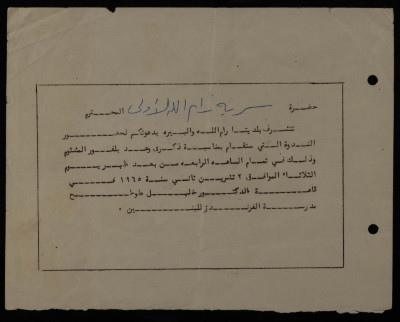 حضرة سرية رام الله الأولى المحترم
تتشرف بلديتا رام الله والبيره بدعوتكم لحضور
الندوة التي ستقام بمناسبة ذكرى وعد بلفور المشئوم
وذلك في تمام الساعه الرابعه من بعد ظهر يوم
الثلاثاء الموافق ٢ تشرين ثاني سنة ١٩٦٥ في
قاعة الدكتور خليل طوطح
مدرسة الفرندز للبنين ٠